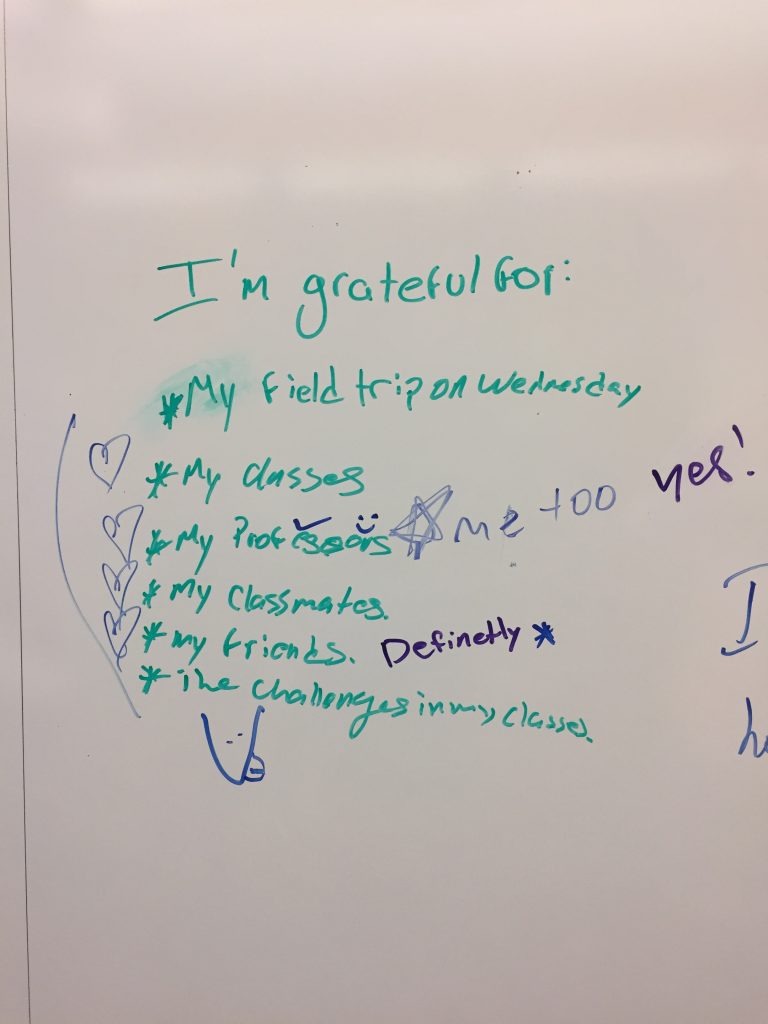 I'm grateful for:
*My field trip on Wednesday
*My classes
*My Professors me too yes!
*My Classmates.
*my friends. Definetly *
*The Challenges in my classes.
I